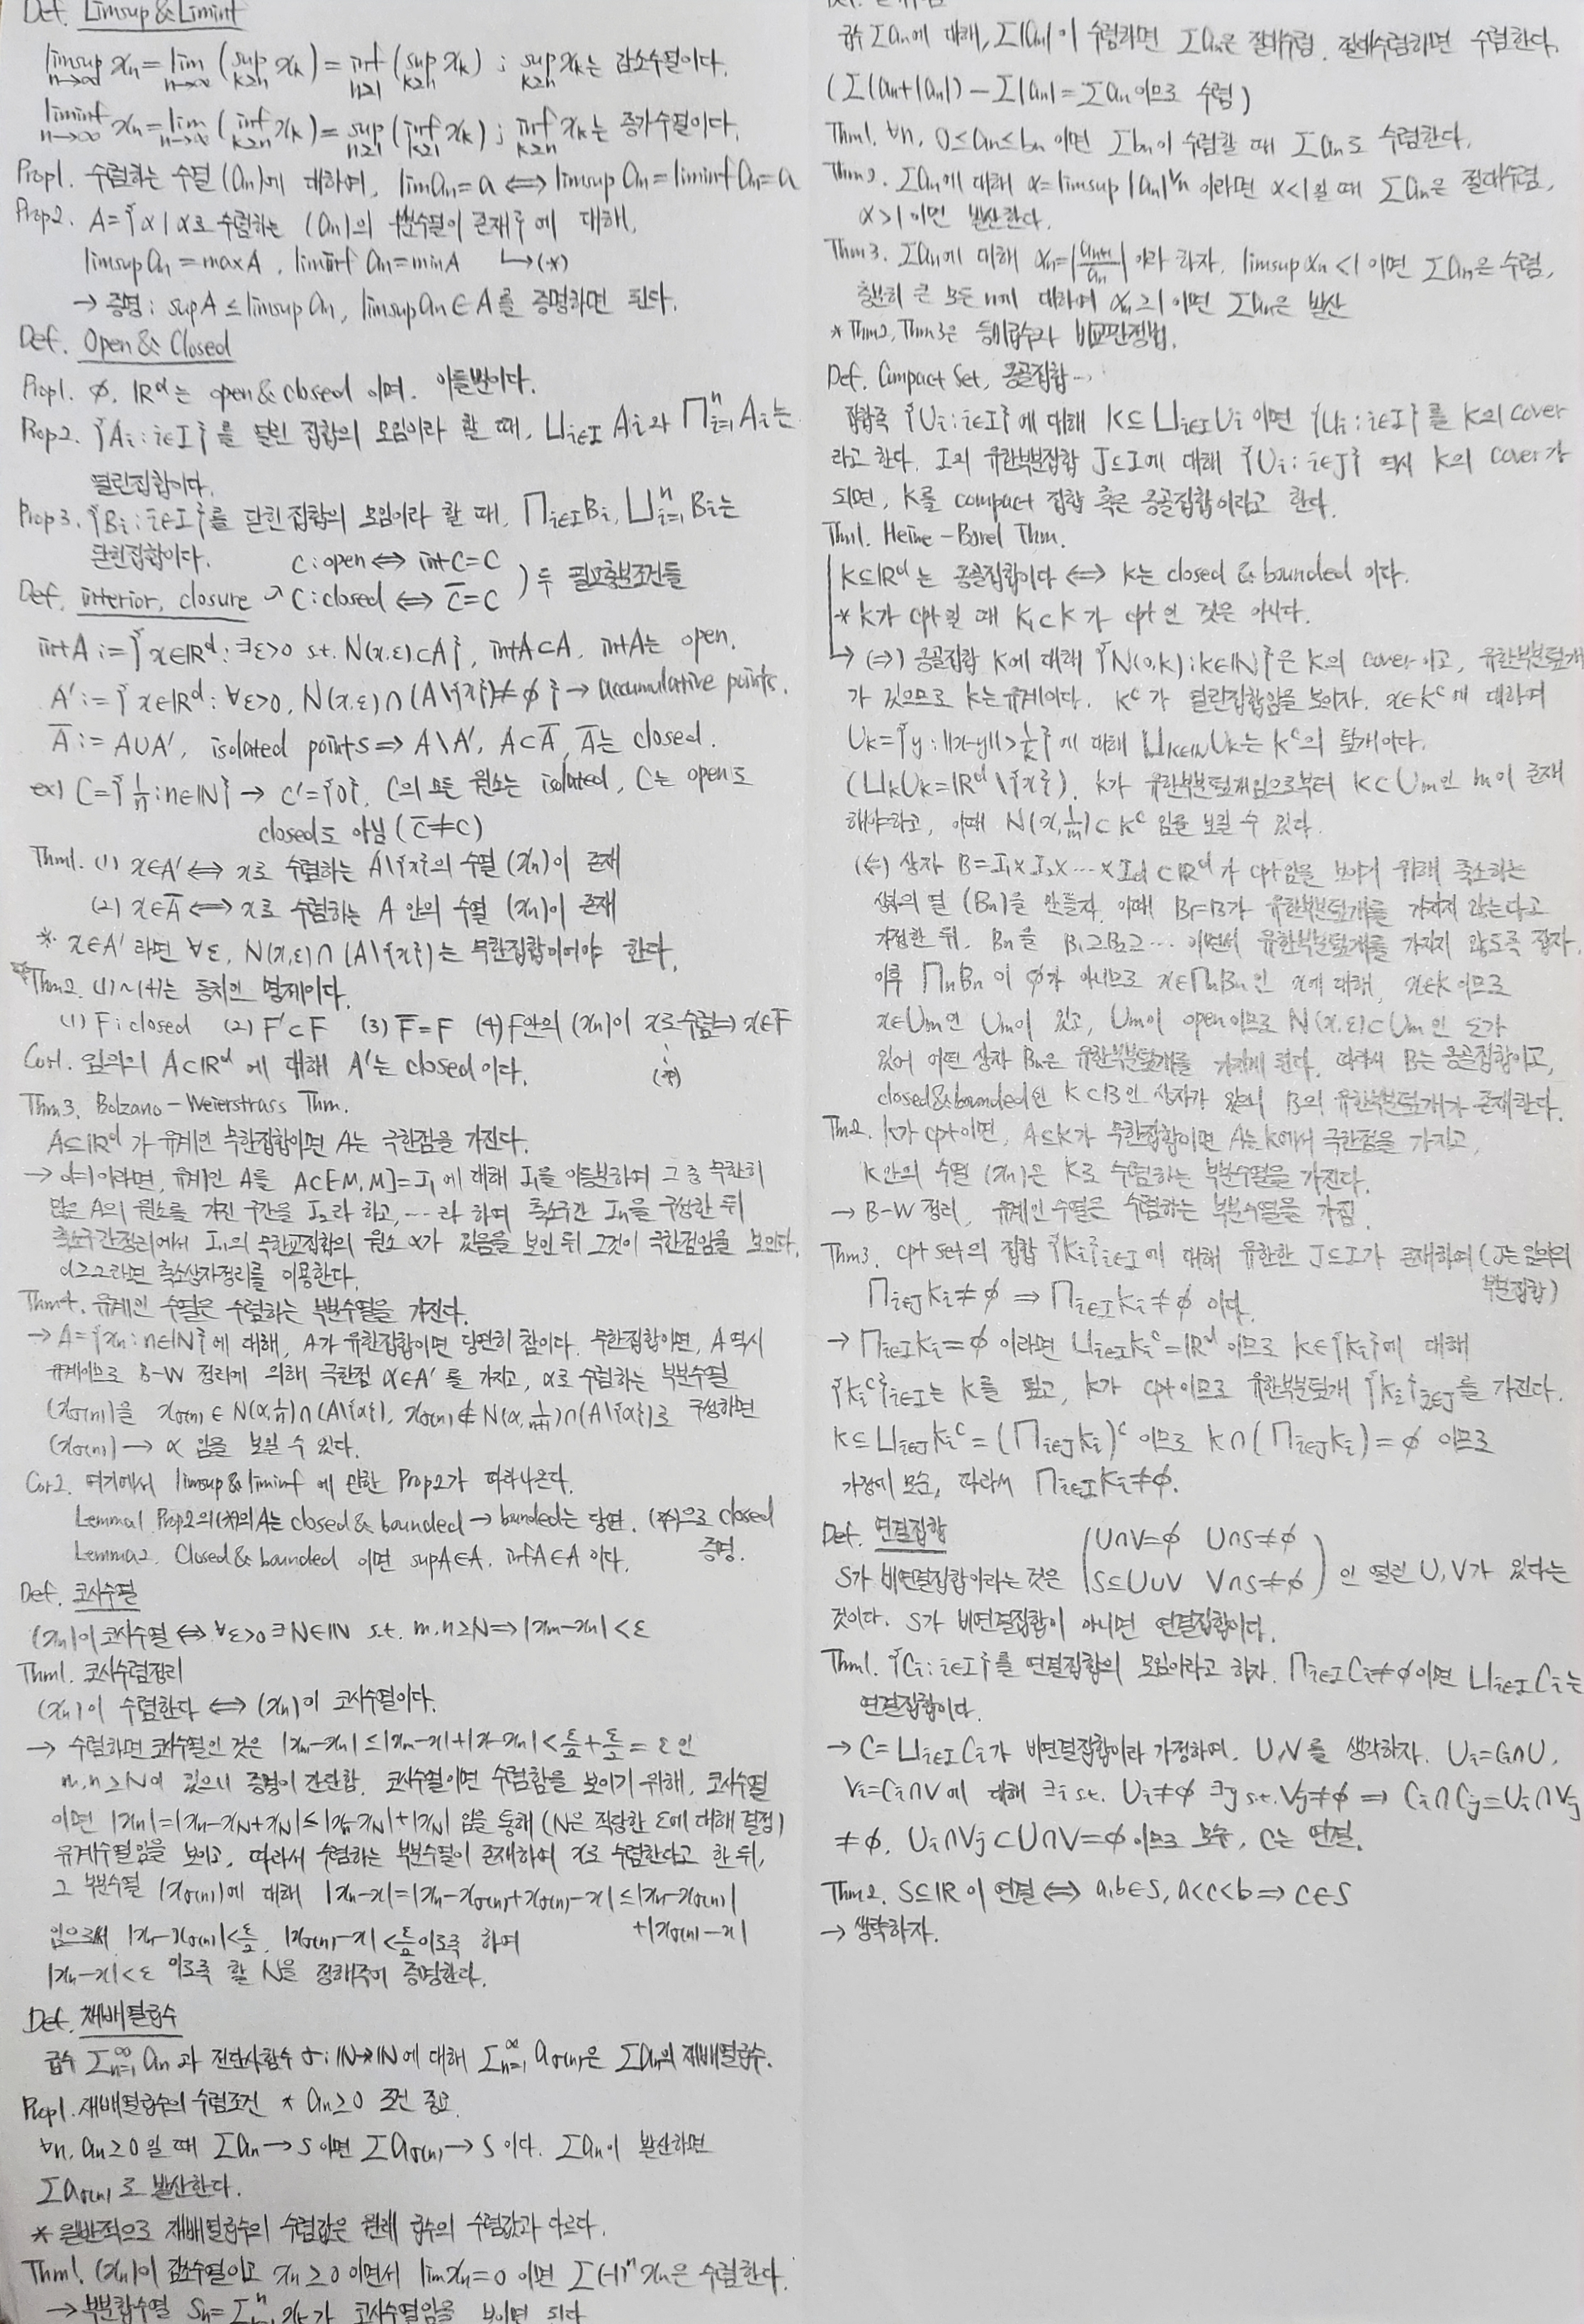 Def. Limsup & Liminf
limsup_{n→∞} xn = lim_{n→∞} (sup_{k≥n} xk) = inf_{n≥1} (sup_{k≥n} xk) ; sup_{k≥n} xk는 감소수열이다.
liminf_{n→∞} xn = lim_{n→∞} (inf_{k≥n} xk) = sup_{n≥1} (inf_{k≥1} xk) ; inf_{k≥n} xk는 증가수열이다.
Prop1. 수렴하는 수열 (an)에 대하여, lim an = a ⟺ limsup an = liminf an = a
Prop2. A = {α | α로 수렴하는 (an)의 부분수열이 존재} 에 대해,
limsup an = max A, liminf an = min A ↳(*)
→ 증명: sup A ≤ limsup an, limsup an ∈ A를 증명하면 된다.
Def. Open & Closed
Prop1. ∅, ℝ^d는 open & closed 이며, 이들뿐이다.
Prop2. {Ai : i∈I}를 열린 집합의 모임이라 할 때, ⋃_{i∈I} Ai와 ⋂_{i=1}^n Ai는
열린집합이다.
Prop3. {Bi : i∈I}를 닫힌 집합의 모임이라 할 때, ⋂_{i∈I} Bi, ⋃_{i=1}^n Bi는
닫힌집합이다. C: open ⟺ int C = C
Def. interior, closure ↗ C: closed ⟺ C̅ = C ) 두 필요충분조건들
int A := {x∈ℝ^d : ∃ε>0 s.t. N(x,ε)⊂A}, int A⊂A, int A는 open.
A' := {x∈ℝ^d : ∀ε>0, N(x,ε)∩(A\{x})≠∅} → accumulative points.
A̅ := A∪A', isolated points ⇒ A\A', A⊂A̅, A̅는 closed.
ex) C = {1/n : n∈ℕ} → C' = {0}, C의 모든 원소는 isolated, C는 open도
closed도 아님 (C̅≠C)
Thm1. (1) x∈A' ⟺ x로 수렴하는 A\{x}의 수열 (xn)이 존재
(2) x∈A̅ ⟺ x로 수렴하는 A 안의 수열 (xn)이 존재
* x∈A' 라면 ∀ε, N(x,ε)∩(A\{x})는 무한집합이어야 한다.
*Thm2. (1)~(4)는 동치인 명제이다.
(1) F: closed (2) F'⊂F (3) F̅=F (4) F안의 (xn)이 x로 수렴 ⇒ x∈F
Cor1. 임의의 A⊂ℝ^d 에 대해 A'는 closed 이다. (☆)
Thm3. Bolzano-Weierstrass Thm.
A⊆ℝ^d 가 유계인 무한집합이면 A는 극한점을 가진다.
→ d=1이라면, 유계인 A를 A⊂[-M, M]=I1 에 대해 I1을 이등분하여 그 중 무한히
많은 A의 원소를 가진 구간을 I2라 하고, … 라 하며 축소구간 In을 구성한 뒤
축소구간정리에서 In의 무한교집합의 원소 α가 있음을 보인 뒤 그것이 극한점임을 보인다.
d≥2라면 축소상자정리를 이용한다.
Thm4. 유계인 수열은 수렴하는 부분수열을 가진다.
→ A={xn : n∈ℕ}에 대해, A가 유한집합이면 당연히 참이다. 무한집합이면, A 역시
유계이므로 B-W 정리에 의해 극한점 α∈A' 를 가지고, α로 수렴하는 부분수열
(xσ(n))을 xσ(n) ∈ N(α, 1/n)∩(A\{α}), xσ(n) ∉ N(α, 1/(n+1))∩(A\{α})로 구성하면
(xσ(n)) → α 임을 보일 수 있다.
Cor2. 여기에서 limsup & liminf 에 관한 Prop2가 따라나온다.
Lemma1. Prop2의 (*)의 A는 closed & bounded → bounded는 당연. (☆)으로 closed
증명.
Lemma2. Closed & bounded 이면 sup A∈A, inf A∈A 이다.
Def. 코사수열
(xn)이 코사수열 ⟺ ∀ε>0 ∃N∈ℕ s.t. m,n≥N ⇒ |xm-xn|<ε
Thm1. 코사수렴정리
(xn)이 수렴한다 ⟺ (xn)이 코사수열이다.
→ 수렴하면 코사수열인 것은 |xm-xn| ≤ |xm-x|+|x-xn| < ε/2+ε/2 = ε 인
m,n≥N이 있으니 증명이 간단함. 코사수열이면 수렴함을 보이기 위해, 코사수열
이면 |xn|=|xn-xN+xN| ≤ |xn-xN|+|xN| 임을 통해 (N은 적당한 ε에 대해 결정)
유계수열임을 보이고, 따라서 수렴하는 부분수열이 존재하여 x로 수렴한다고 한 뒤,
그 부분수열 (xσ(n))에 대해 |xn-x|=|xn-xσ(n)+xσ(n)-x| ≤ |xn-xσ(n)|
+|xσ(n)-x|
임으로써 |xn-xσ(n)|<ε/2, |xσ(n)-x|<ε/2이도록 하여
|xn-x|<ε 이도록 할 N을 정해주어 증명한다.
Def. 재배열급수
급수 Σ_{n=1}^∞ an 과 전단사함수 σ: ℕ→ℕ에 대해 Σ_{n=1}^∞ aσ(n)은 Σan의 재배열급수.
Prop1. 재배열급수의 수렴조건 * an≥0 조건 중요
∀n, an≥0 일 때 Σan → S 이면 Σaσ(n) → S 이다. Σan이 발산하면
Σaσ(n)로 발산한다.
* 일반적으로 재배열급수의 수렴값은 원래 급수의 수렴값과 다르다.
Thm1. (xn)이 감소수열이고 xn≥0 이면서 lim xn=0 이면 Σ(-1)^n xn은 수렴한다.
→ 부분합수열 Sn=Σ^n xk가 코사수열임을 보이면 된다
급수 Σan에 대해, Σ|an|이 수렴하면 Σan은 절대수렴. 절대수렴하면 수렴한다.
(Σ(an+|an|) - Σ|an| = Σan 이므로 수렴)
Thm1. ∀n, 0≤an≤bn 이면 Σbn이 수렴할 때 Σan도 수렴한다.
Thm2. Σan에 대해 α=limsup |an|^{1/n} 이라면 α<1일 때 Σan은 절대수렴,
α>1 이면 발산한다.
Thm3. Σan에 대해 αn=|an+1/an| 이라 하자. limsup αn <1 이면 Σan은 수렴,
충분히 큰 모든 n에 대하여 αn≥1 이면 Σan은 발산
* Thm2, Thm3은 등비급수와 비교판정법.
Def. Compact Set, 콩골집합…
집합족 {Ui : i∈I}에 대해 K⊆⋃_{i∈I}Ui 이면 {Ui : i∈I}를 K의 cover
라고 한다. I의 유한부분집합 J⊆I에 대해 {Ui : i∈J} 역시 K의 cover가
되면, K를 compact 집합 혹은 콩골집합이라고 한다.
Thm1. Heine-Borel Thm.
K⊆ℝ^d는 콩골집합이다 ⟺ K는 closed & bounded 이다.
* K가 cpt일 때 K1⊂K가 cpt인 것은 아니다.
↳ (⇒) 콩골집합 K에 대해 {N(0,k) : k∈ℕ}은 K의 cover이고, 유한부분덮개
가 있으므로 K는 유계이다. K^c가 열린집합임을 보이자. x∈K^c에 대하여
Uk={y : ||x-y||>1/k}에 대해 ⋃_{k∈ℕ}Uk는 K^c의 덮개이다.
(⋃_k Uk = ℝ^d\{x}). K가 유한부분덮개임으로부터 K⊂Um인 m이 존재
해야하고, 이때 N(x, 1/m)⊂K^c 임을 보일 수 있다.
(⇐) 상자 B=I1×I2×…×Id⊂ℝ^d가 cpt임을 보이기 위해 축소하는
상자의 열 (Bn)을 만들자. 이때 B1=B가 유한부분덮개를 가지지 않는다고
가정한 뒤, Bn을 B1⊇B2⊇… 이면서 유한부분덮개를 가지지 않도록 잡자.
이후 ⋂_n Bn이 ∅가 아니므로 x∈⋂_n Bn인 x에 대해, x∈K이므로
x∈Um인 Um이 있고, Um이 open이므로 N(x,ε)⊂Um인 ε가
있어 어떤 상자 Bn은 유한부분덮개를 가지게 된다. 따라서 B는 콩골집합이고,
closed&bounded인 K⊂B인 상자가 있으니 B의 유한부분덮개가 존재한다.
Thm2. K가 cpt이면, A⊆K가 무한집합이면 A는 K에서 극한점을 가지고,
K안의 수열 (xn)은 K로 수렴하는 부분수열을 가진다.
→ B-W 정리, 유계인 수열은 수렴하는 부분수열을 가짐.
Thm3. cpt set의 집합 {Ki}_{i∈I}에 대해 유한한 J⊆I가 존재하여 (J는 임의의
부분집합)
⋂_{i∈J}Ki≠∅ ⇒ ⋂_{i∈I}Ki≠∅ 이다.
→ ⋂_{i∈I}Ki=∅ 이라면 ⋃_{i∈I}Ki^c=ℝ^d 이므로 K∈{Ki}에 대해
{Ki^c}_{i∈I}는 K를 덮고, K가 cpt이므로 유한부분덮개 {Ki}_{i∈J}를 가진다.
K⊆⋃_{i∈J}Ki^c=(⋂_{i∈J}Ki)^c 이므로 K∩(⋂_{i∈J}Ki)=∅ 이므로
가정에 모순, 따라서 ⋂_{i∈I}Ki≠∅.
Def. 연결집합
S가 비연결집합이라는 것은 (U∩V=∅ U∩S≠∅ S⊆U∪V V∩S≠∅) 인 열린 U,V가 있다는
것이다. S가 비연결집합이 아니면 연결집합이다.
Thm1. {Ci : i∈I}를 연결집합의 모임이라고 하자. ⋂_{i∈I}Ci≠∅이면 ⋃_{i∈I}Ci는
연결집합이다.
→ C=⋃_{i∈I}Ci가 비연결집합이라 가정하며, U,V를 생각하자. Ui=Ci∩U,
Vi=Ci∩V에 대해 ∃i s.t. Ui≠∅ ∃j s.t. Vj≠∅ ⇒ Ci∩Cj=Ui∩Vj
≠∅. Ui∩Vj⊂U∩V=∅이므로 모순, C는 연결.
Thm2. S⊆ℝ이 연결 ⟺ a,b∈S, a<c<b ⇒ c∈S
→ 생략하자.